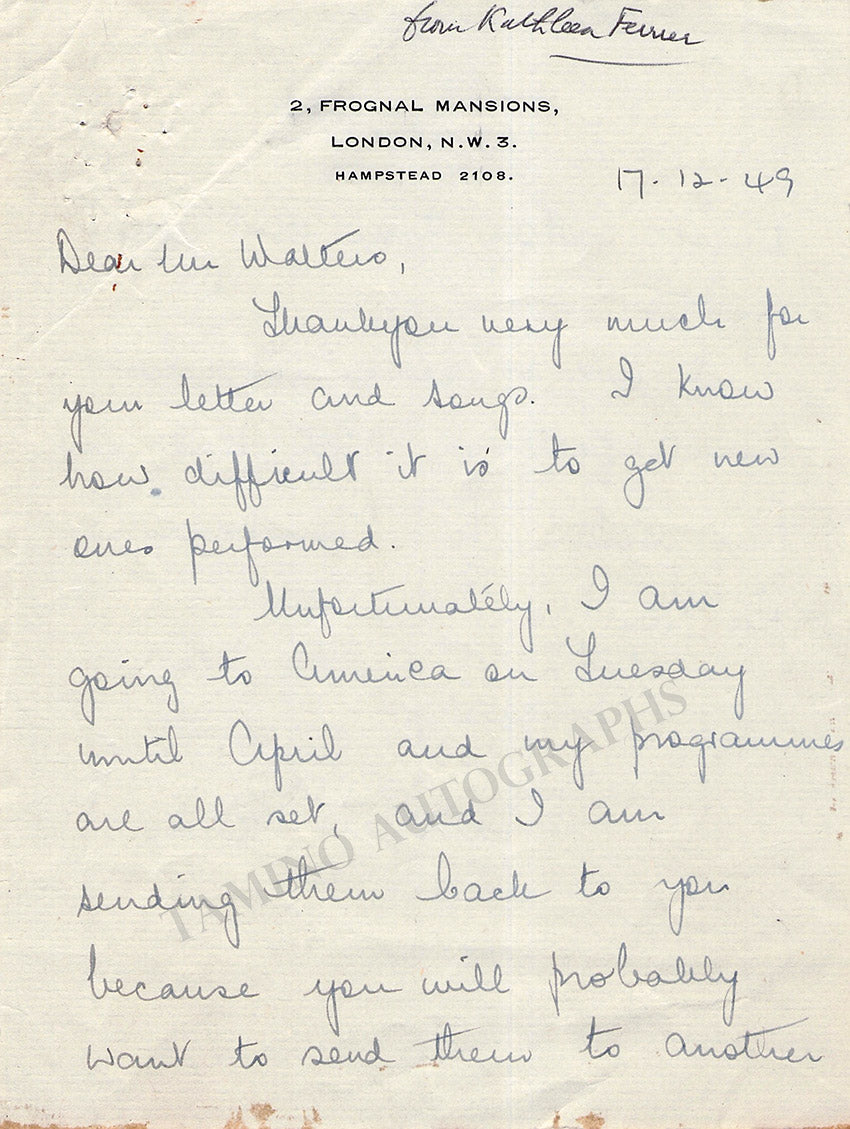 from Kathleen Ferrier
2, FROGNAL MANSIONS,
LONDON, N.W.3.
HAMPSTEAD 2108.
17-12-49
Dear Mr Walters,
Thankyou very much for
your letter and songs. I know
how difficult it is to get new
ones performed.
Unfortunately, I am
going to America on Tuesday
until April and my programmes
are all set, and I am
sending them back to you
because you will probably
want to send them to another
TAMINO AUTOGRAPHS